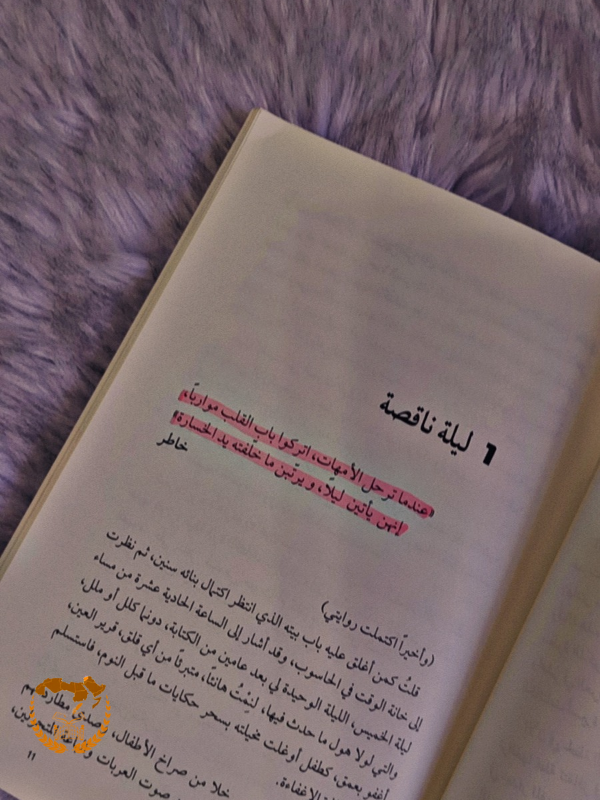 1 ليلة ناقصة
"عندما ترحل الأمهات، اتركوا باب القلب مواربًا،
إنهن يأتين ليلًا، ويرتّبن ما خلّفته يد الخسارة"
خاطر
(وأخيراً اكتملت روايتي)
قلتُ كمن أغلق عليه باب بيته الذي انتظر اكتمال بنائه سنين، ثم نظرت
إلى خانة الوقت في الحاسوب، وقد أشار إلى الساعة الحادية عشرة من مساء
ليلة الخميس، الليلة الوحيدة لي بعد عامين من الكتابة، دونما كلل أو ملل،
والتي لولا هول ما حدث فيها، لنِمْتُ هانئاً، متبرئاً من أي قلق، قرير العين،
أغفو بعمق، كطفل أوغلت مخيلته بسحر حكايات ما قبل النوم، فاستسلم
الإغفاءة.
خلا من صراخ الأطفال، وصدى
صوت العربات
11